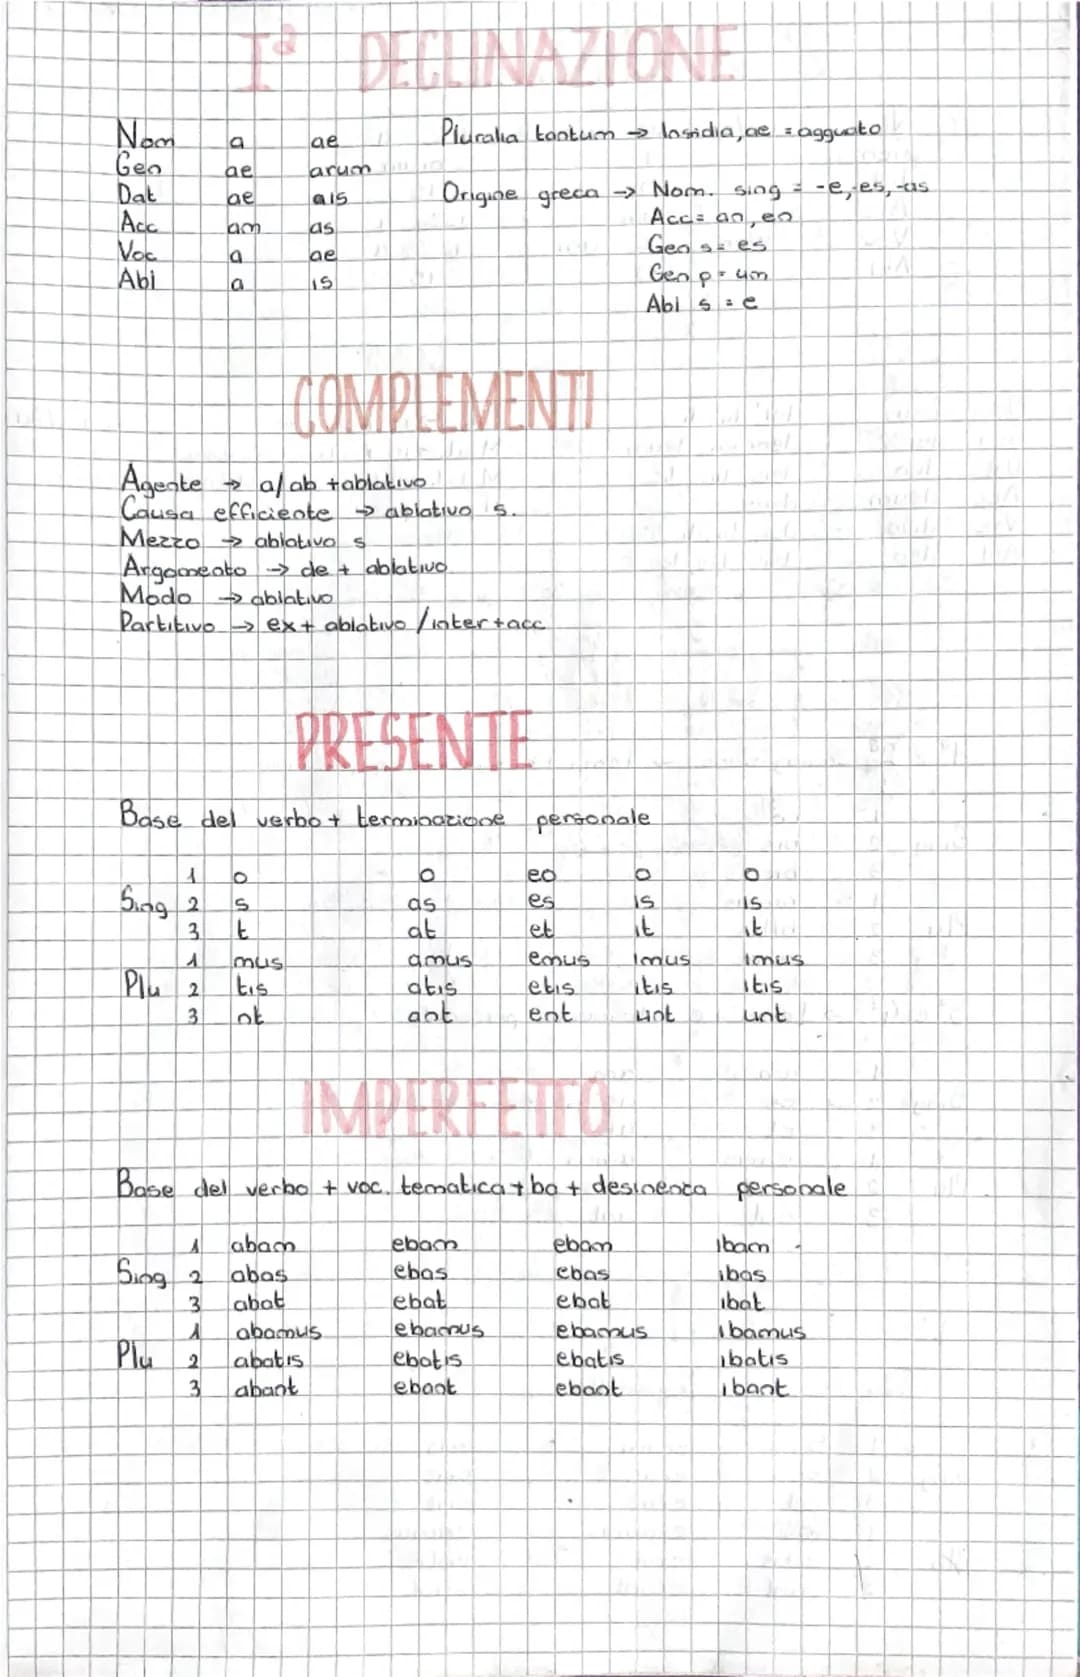 Iª DECLINAZIONE
Nom a ae Pluralia tantum → Insidia, ae = agguato
Gen ae arum
Dat ae ais Origine greca → Nom. sing = -e, -es, -as
Acc am as Acc = an, en
Voc a ae Gen s = es
Abl a is Gen p = um
Abl s = e
COMPLEMENTI
Agente → a/ab + ablativo
Causa efficiente → ablativo s.
Mezzo → ablativo s
Argomento → de + ablativo
Modo → ablativo
Partitivo → ex + ablativo / inter + acc
PRESENTE
Base del verbo + terminazione personale
1 o o eo o o
Sing 2 s as es is is
3 t at et it it
1 mus amus emus imus imus
Plu 2 tis atis etis itis itis
3 nt ant ent unt unt
IMPERFETTO
Base del verbo + voc. tematica + ba + desinenza personale
1 abam ebam ebam ibam
Sing 2 abas ebas ebas ibas
3 abat ebat ebat ibat
1 abamus ebamus ebamus ibamus
Plu 2 abatis ebatis ebatis ibatis
3 abant ebant ebant ibant